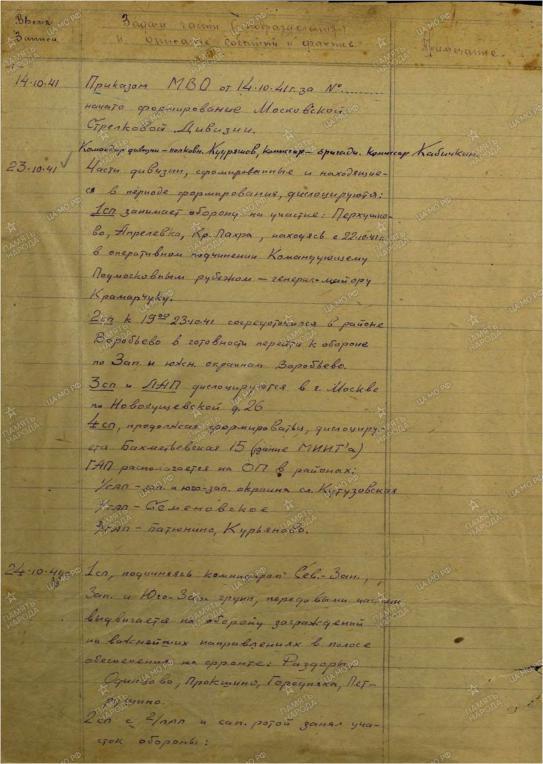 Время
Записи
Задачи части (подразделения)
и описание событий и фактов
Примечание.
14·10·41 Приказом МВО от 14·10·41 г. за №
начато формирование Московской
Стрелковой Дивизии.
Командир дивизии – полковн. комиссар – бригадн. комиссар
23·10·41 Части дивизии, сформированные и находящие-
ся в периоде формирования, дислоцируются:
1сп занимает оборону на участке: Перхушко-
во, Апрелевка, Кр. Пахра, находясь с 22·10·41 г.
в оперативном подчинении Командующему
Подмосковным рубежом – генерал-майору
Крамарчуку.
2сп к 19 23·10·41 сосредоточился в районе
Воробьево в готовности перейти к обороне
по Зап. и южн. окраинам Воробьево.
3сп и ЛАП дислоцируются в г. Москве
по д. 26
4сп, продолжая формироваться, дислоциру-
ется Бахметьевская 15 (здание МИИТ'а)
ГАП располагается на ОП в районах:
1/гап – зап. и юго-зап. окраина сл. Кутузовская
2/гап – Семеновское
3/гап – Патюнино, Курьяново.
24·10·41 1сп, подчиняясь комендантам Сев.-Зап.,
Зап. и Юго-Зап. групп, передовыми частями
выдвигается на оборону заграждений
на важнейших направлениях в полосе
обеспечения на фронте: Раздоры,
Одинцово, Прокшино, Городняха, Пет-
рушино.
2сп с 2/лап и сап. ротой занял уча-
сток обороны:
ПАМЯТЬ
НАРОДА
ЦАМО.РФ